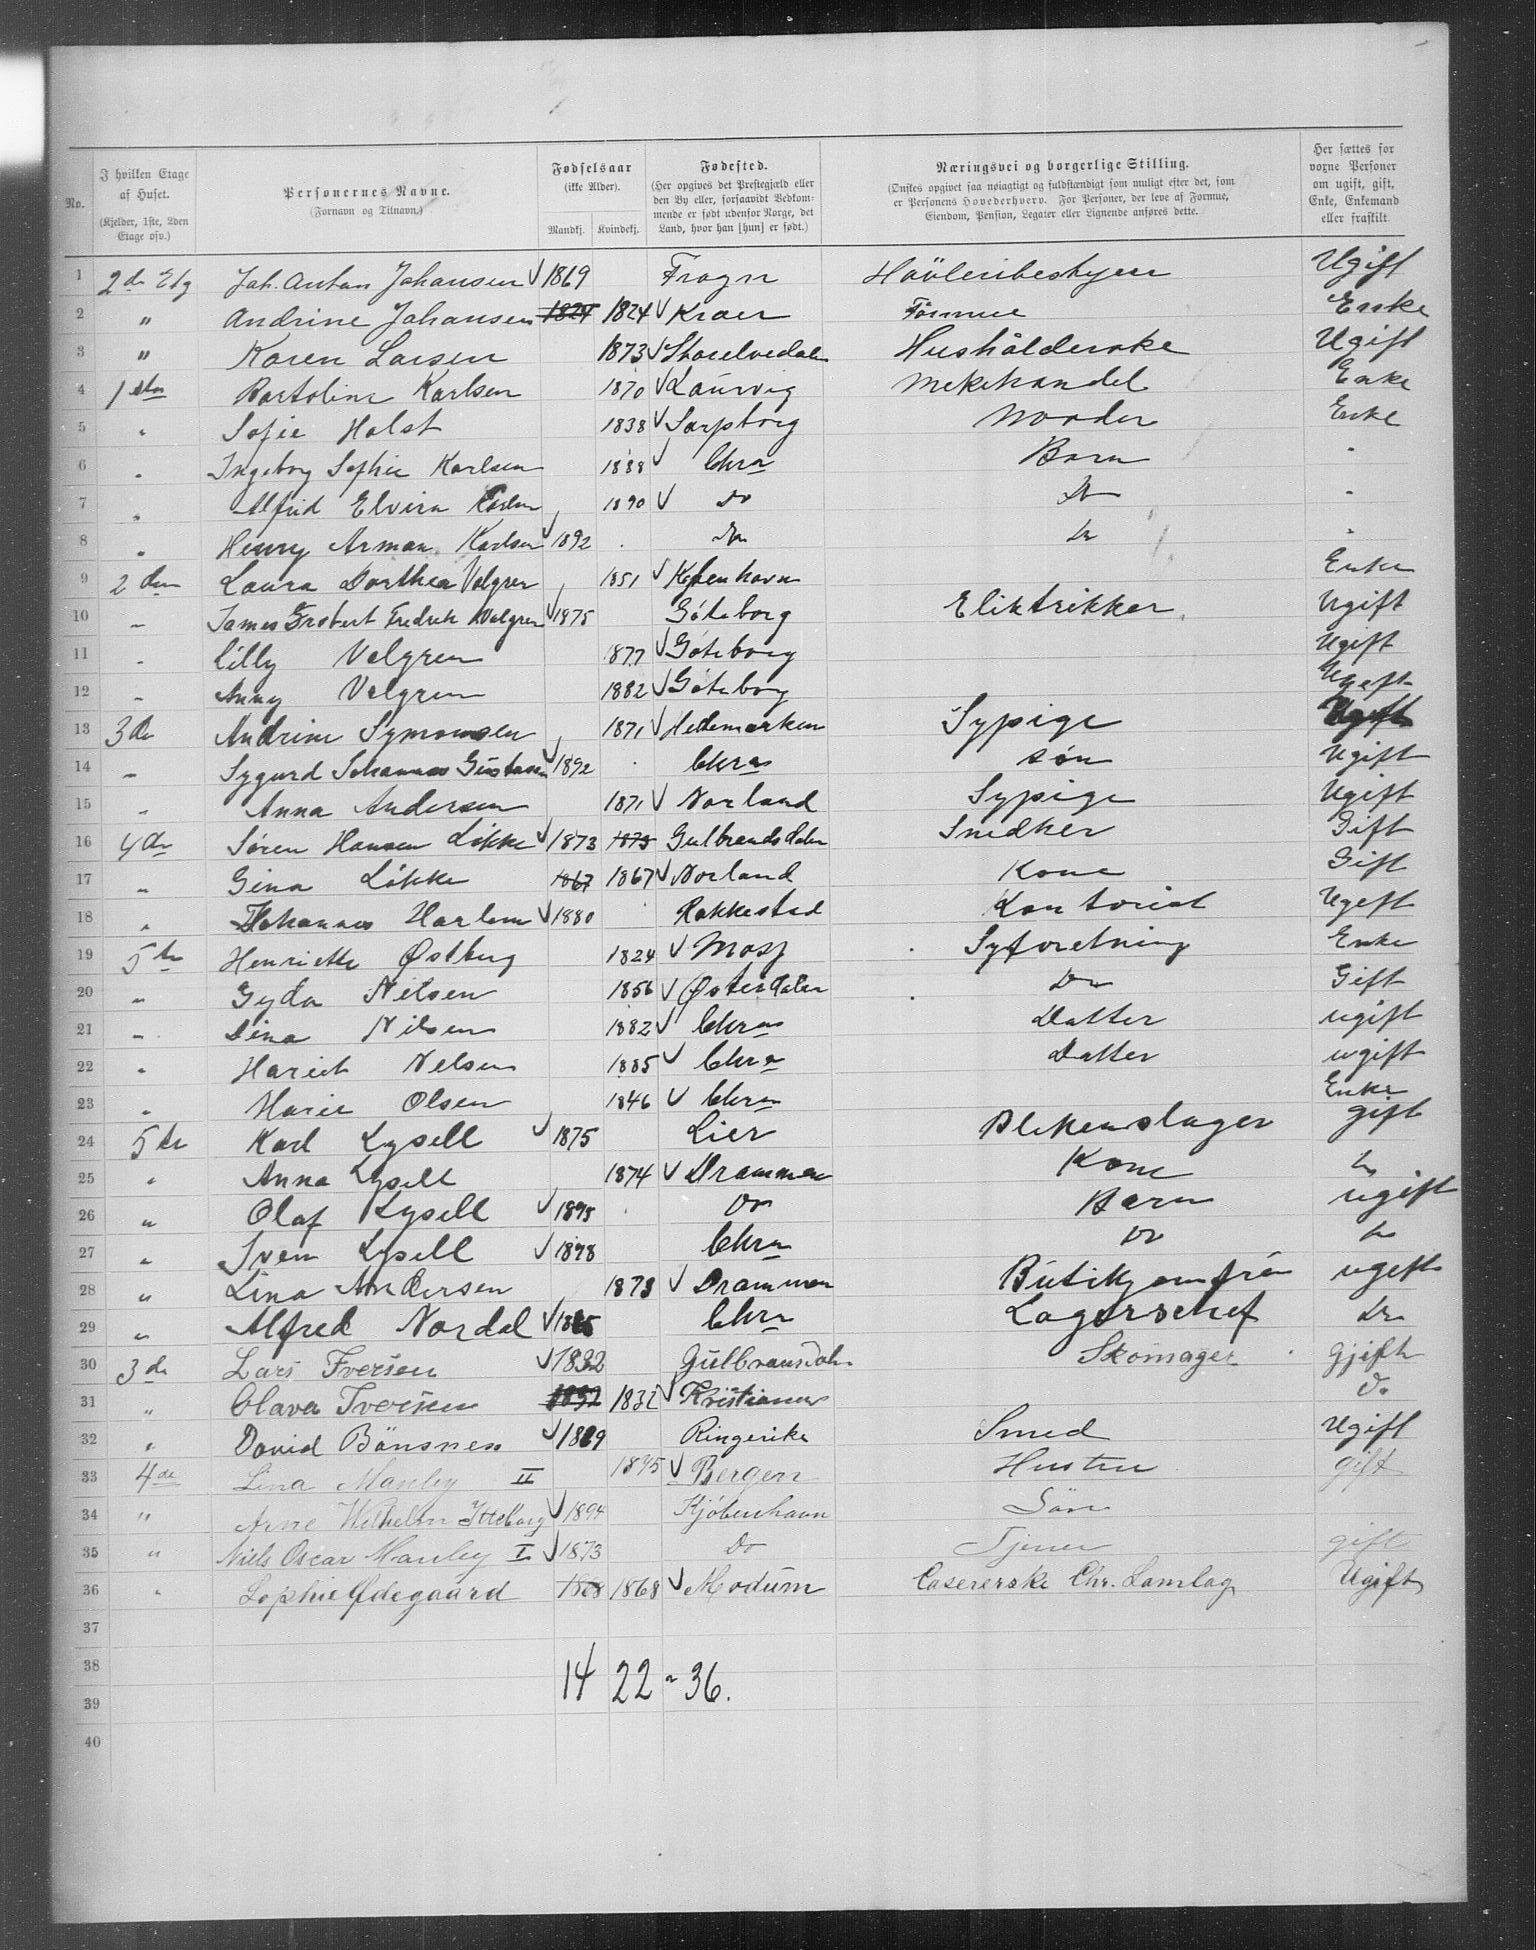 No. | I hvilken Etage af Huset. (Kjelder, 1ste, 2den Etage osv.) | Personernes Navne. (Fornavn og Tilnavn.) | Fødselsaar (ikke Alder). Mandkj. Kvindekj. | Fødested. (Her opgives det Prestegjæld eller den By eller, forsaavidt Vedkommende er født udenfor Norge, det Land, hvor han [hun] er født.) | Næringsvei og borgerlige Stilling. (Ønskes opgivet saa nøiagtigt og fuldstændigt som muligt efter det, som er Personens Hovederhverv. For Personer, der leve af Formue, Eiendom, Pension, Legater eller Lignende anføres dette.) | Her sættes for voxne Personer om ugift, gift, Enke, Enkemand eller fraskilt.
1 2de Etg Joh. Anton Johansen 1869 Frogn Høvleribestyrer Ugift
2 " Andrine Johansen 1824 1824 Kraer Formue Enke
3 " Karen Larsen 1873 Storelvedalen Husholderske Ugift
4 1ste Bartoline Karlsen 1870 Laurvig Melkehandel Enke
5 " Sofie Holst 1838 Sarpsborg Moder Enke
6 " Ingeborg Sophie Karlsen 1888 Chra Barn "
7 " Alfrid Elvira Karlsen 1890 Do Do "
8 " Henry Arman Karlsen 1892 Do Do "
9 2den Laura Dorthea Valgren 1851 København Enke
10 " James Frobert Fredrik Valgren 1875 Göteborg Eliktrikker Ugift
11 " Cilly Valgren 1877 Göteborg Ugift
12 " Anny Valgren 1882 Göteborg Ugift
13 3de Andrine Symonsen 1871 Hedemarken Sypige Ugift
14 " Sygurd Johannes Gustavsen 1892 Chra søn Ugift
15 " Anna Andersen 1871 Norland Sypige Ugift
16 4de Søren Hansen Løkke 1873 1873 Gulbrandsdalen Snedker Gift
17 " Gina Løkke 1867 1867 Norland Kone Gift
18 " Johannes Harlem 1880 Rakkestad Kontorist Ugift
19 5te Henriette Østberg 1824 Moss Syforetning Enke
20 " Gyda Nilsen 1856 Østerdalen Do Gift
21 " Dina Nilsen 1882 Chra Datter ugift
22 " Hariet Nelsen 1885 Chra Datter ugift
23 " Marie Olsen 1846 Chra Enke
24 5te Karl Lysell 1875 Lier Blikenslager gift
25 " Anna Lysell 1874 Drammen Kone Do
26 " Olaf Lysell 1895 Do Barn ugift
27 " Sven Lysell 1898 Chra Do Do
28 " Lina Andersen 1873 Drammen Butikjomfru ugift
29 " Alfred Nordal Chra Lagerschef Do
30 3de Lars Iversen 1832 Gulbransdalen Skomager Gjift
31 " Olava Iversen 1832 1832 Kristiania Do
32 " David Bönsnes 1869 Ringerike Smed Ugift
33 4de Lina Manley II 1875 Bergen Hustru gift
34 " Arne Wilhelm Itteborg 1894 Kjøbenhavn Søn
35 " Niels Oscar Manley I 1873 Do Tjener gift
36 " Sophie Ødegaard 1868 1868 Modum Casererske Chr. Lamlag Ugift
37
38 14 22 = 36.
39
40